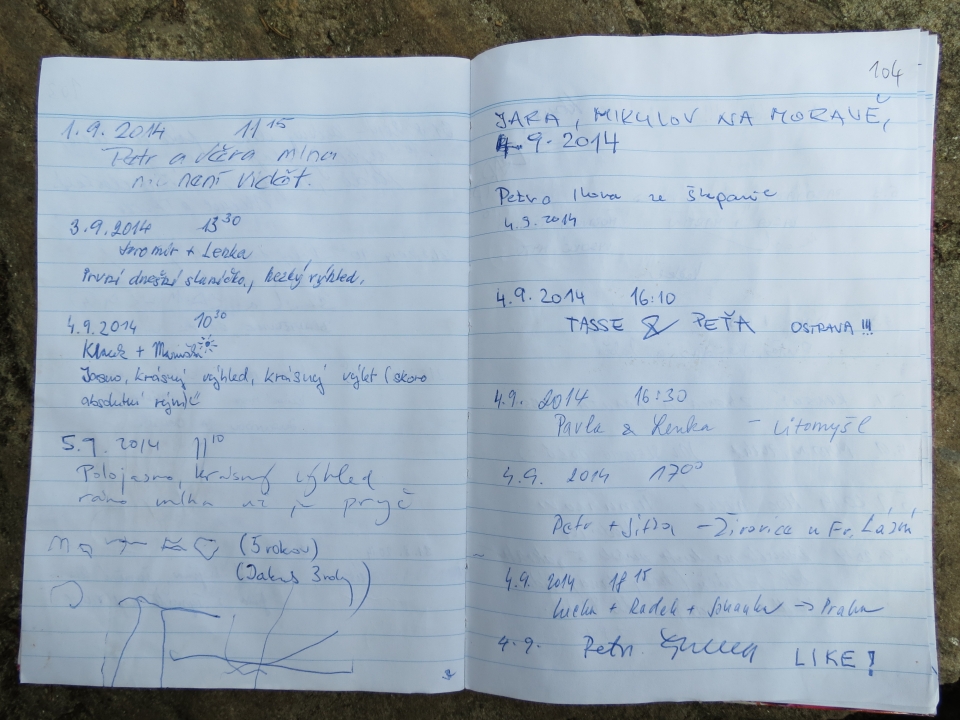 1.9.2014 11 15
Petr a Věra
nic není vidět.
3.9.2014 13 30
Jaromír + Lenka
První dnešní sluníčko, hezký výhled.
4.9.2014 10 30
Jasno, krásný výhled, krásný výlet (skoro
absolutní rým)
5.9.2014 11 10
Polojasno, krásný výhled
ráno mlha už je pryč
(5 rokov)
(Jakub 3roky)
104
JARA, MIKULOV NA MORAVĚ,
4.9.2014
ze Štěpanic
4.9.2014
4.9.2014 16:10
TASSE & PEŤA OSTRAVA!!!
4.9. 2014 16:30
Pavla & Lenka - Litomyšl
4.9. 2014 17 00
Petr + Jitka - Žirovice u Fr. Lázní
4.9. 2014 18 15
+ Radek + → Praha
4.9. Petr LIKE!